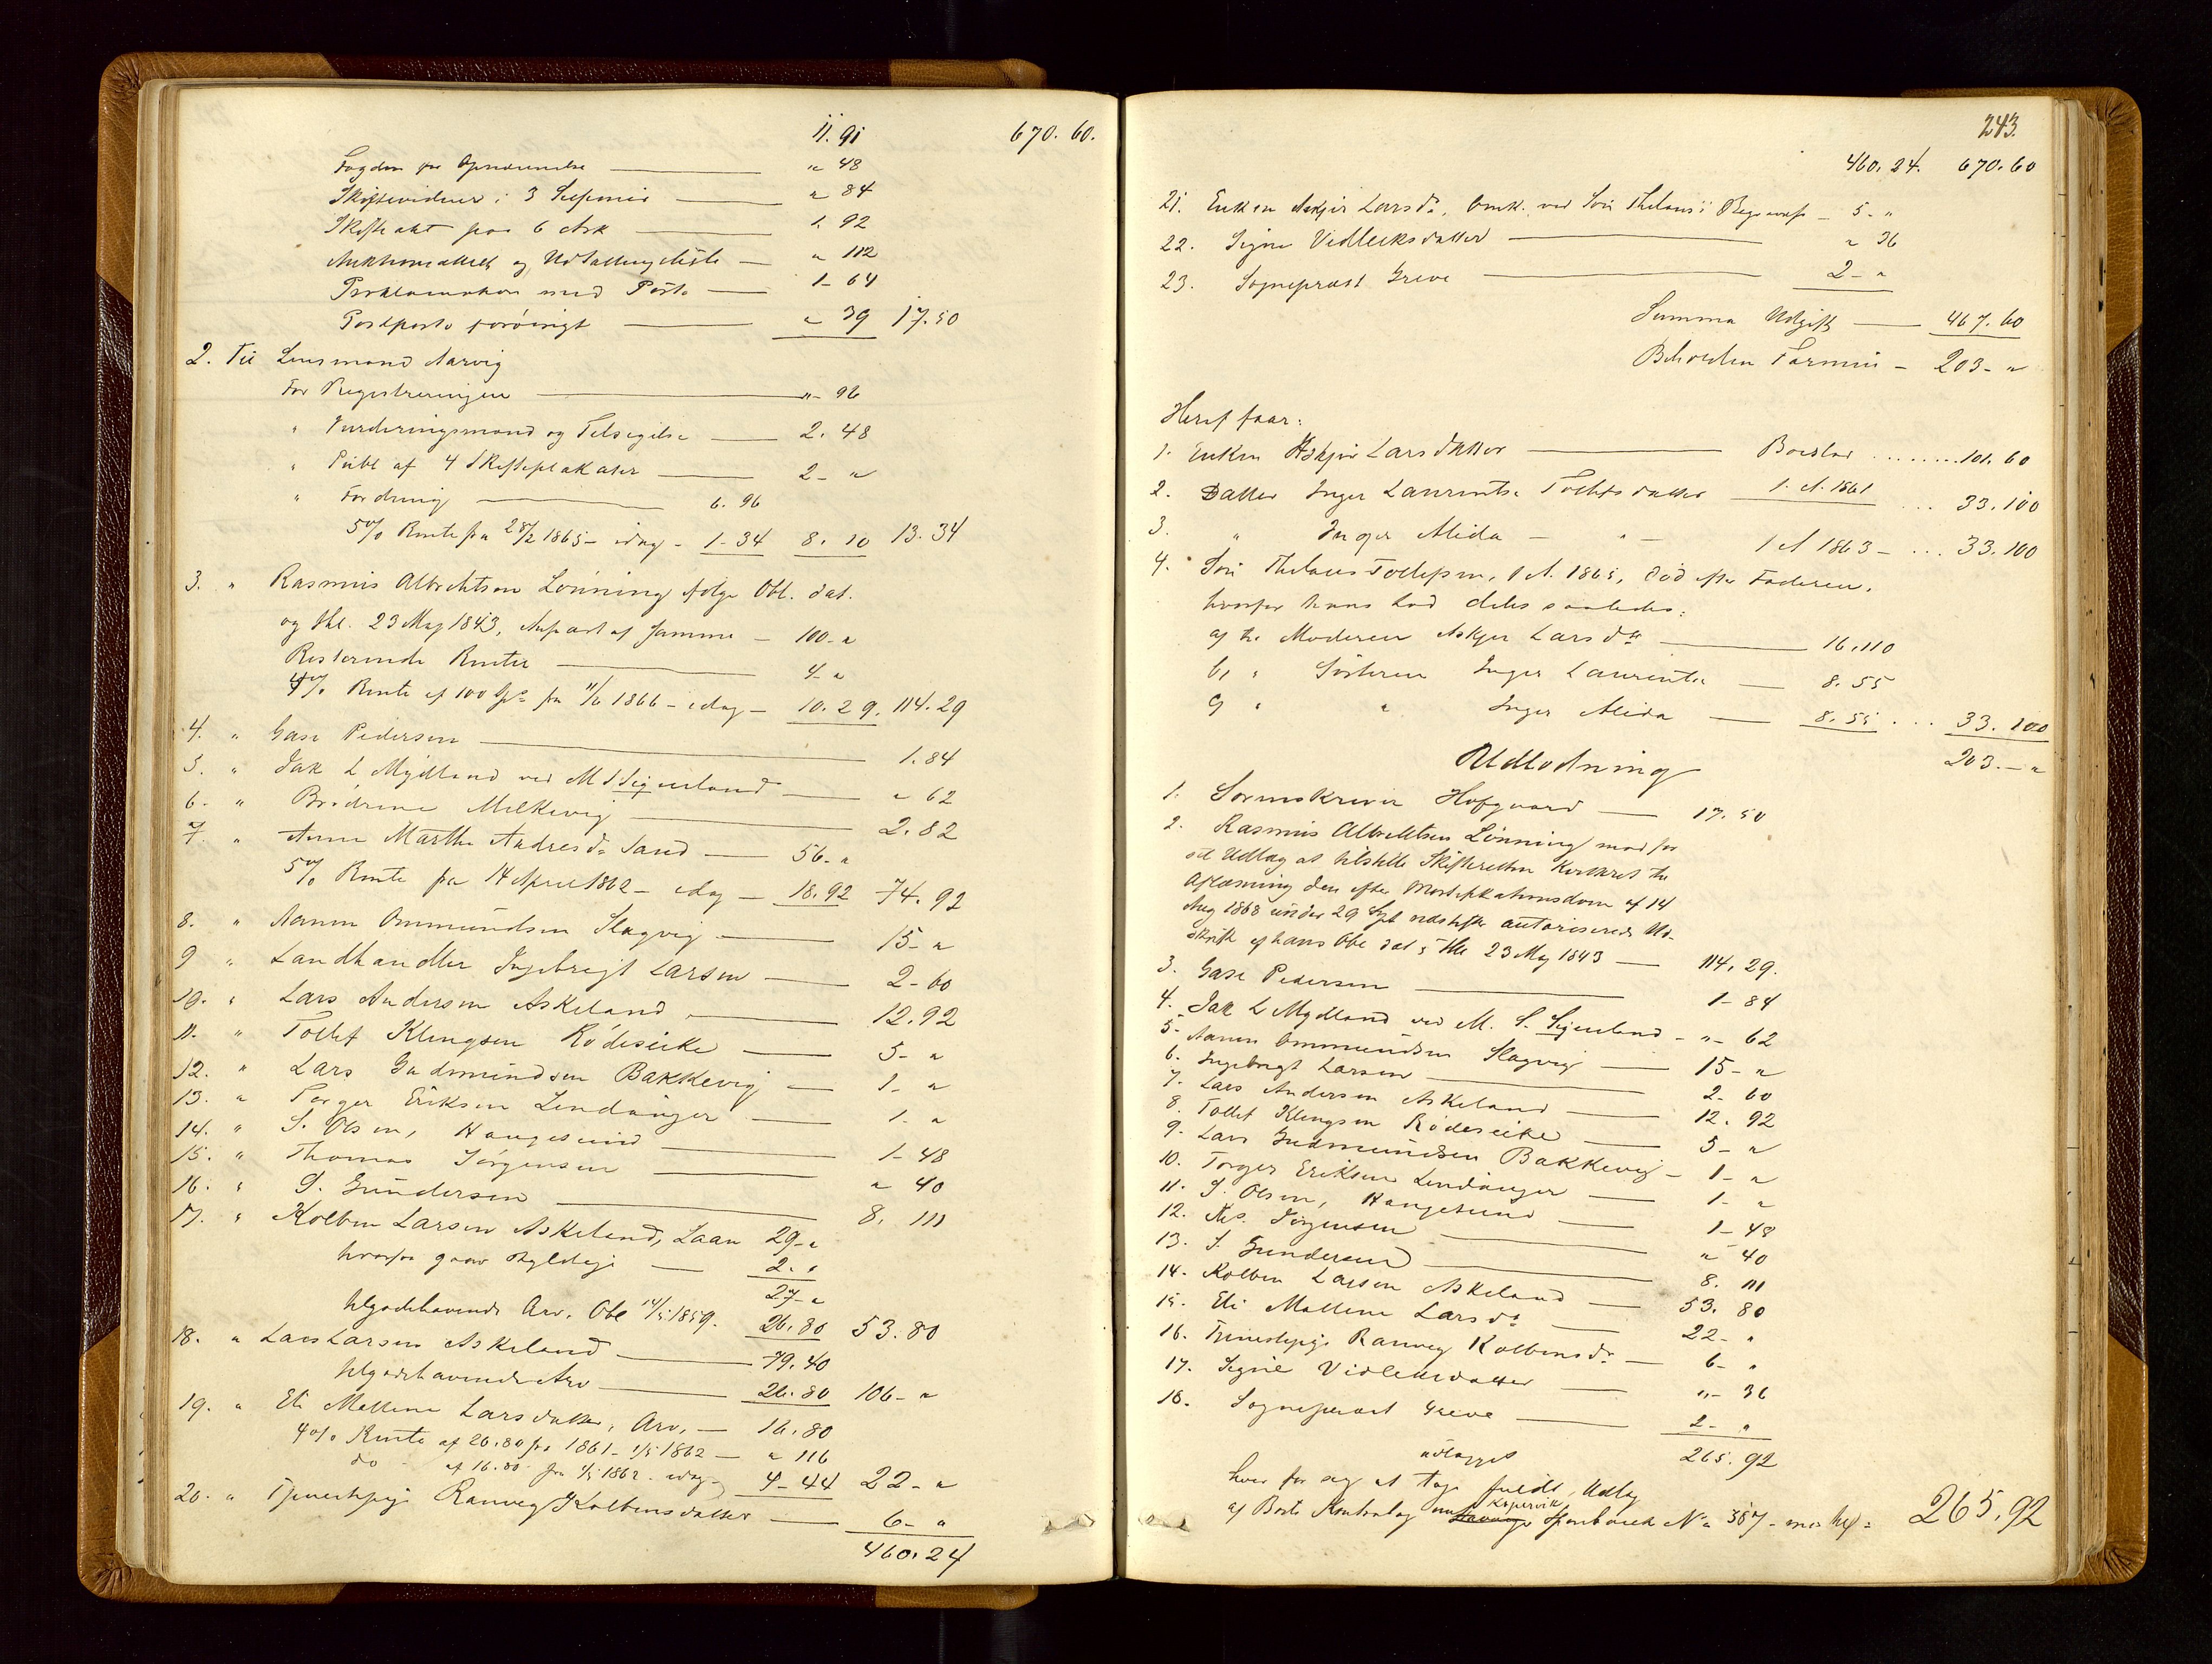 11. 91 670. 60.
Fogden for Opnævnelse — " 48
Skiftevidner i 3 — " 84
Skifteakt paa 6 Ark — 1. 92
og Udlodningsliste — " 112
Proklamation med Porto — 1- 64
Postporto forøvrigt — " 39 17. 50
2. Til Lensmand Aarvig
For Registreringen — "- 96
" Vurderingsmænd og Tilsigelse — 2. 48
" Publ af 4 Skifteplakater — 2- "
" Fordring — 6. 96
5% Rente fra 28/2 1865 - idag - 1-34 8. 10 13. 34
3. " Rasmus Albrektsen Lönning ifølge Obl. dat.
og thl. 23 May 1843, Anpart af samme — 100-"
Resterende Renter — 4-"
4% Rente af 100 Spd fra 11/6 1866 - idag - 10. 29. 114. 29
4. " Gase Pedersen — 1. 84
5. " Jak L Mydland ved M S Sigvesland — " 62
6. " Brödrene Melkevig — 2. 82
7. " Anne Marthe Andresdr Sand — 56. "
5% Rente fra 14 April 1862 - idag - 18. 92 74. 92
8. " Aanen Ommundsen Slagvig — 15- "
9 " Landhandler Ingebrigt Larsen — 2- 60
10. " Lars Andersen Askeland — 12. 92
11. " Tollef Klingsen Rödeseike — 5- "
12. " Lars Gudmundsen Bakkevig — 1- "
13. " Torger Eriksen Lindanger — 1- "
14. " S. Olsen, Haugesund — 1- 48
15. " Thomas Jörgensen — " 40
16. " S. Gundersen — 8. 111
17. " Kolben Larsen Askeland, Laan 29-"
hvorfor — 2. "
27-"
tilgodehavende Arv. Obl 14/5 1859. 26. 80 53. 80
18. " Lars Larsen Askeland — 79. 40
tilgodehavende Arv — 26. 80 106- "
19. " Eli Mallene Larsdatter, Arv. — 16. 80
4% Rente af 26.80 fra 1861 - 1/5 1862 — " 116
do af 16.80 fra 1/5 1862 - idag - 4- 44 22- "
20. " Tjenestepige Ranveg Kolbensdatter — 6- "
460. 24
243.
460. 24. 670. 60
21. Enken Askjer Larsdr, Omk. ved Sön Thelaus's Begravelse - 5- "
22. Signe Vidleiksdatter — " 36
23. Sognepræst Greve — 2- "
Summa Udgift — 467. 60
Beholden Formue - 203- "
Heraf faar:
1. Enken Askjer Larsdatter — Boeslod ........ 101. 60
2. Datter Inger Laurentse Tollefsdatter 1. A. 1861 ... 33. 100
3. " Inger Alida - " - 1 A 1863 - ... 33. 100
4. Sön Thelaus Tollefsen, 1 A. 1865, död efter Faderen,
hvorfor hans Lod deles saaledes:
a, til Moderen Askjer Larsdtr — 16. 110
b, " Sösteren Inger Laurentse — 8. 55
c, " " Inger Alida — 8. 55 ... 33. 100
203. - "
Udlodning
1. Sorenskriver Hofgaard — 17. 50
2. Rasmus Albrektsen Lönning mod for
sit Udlæg at tilstille Skifteretten Kvitteret til
Aflæsning den efter Mortifikationsdom af 14
Aug 1868 under 29 Spt nedstefter autoriserede Ud-
skrift af hans Obl dat & thl 23 May 1843 — 114. 29.
3. Gase Pedersen — 1- 84
4. Jak L Mydland ved M. S. Sigvesland - "- 62
5. Aanen Ommundsen Slagvig — 15- "
6. Ingebrigt Larsen — 2- 60
7. Lars Andersen Askeland — 12. 92
8. Tollef Klingsen Rödeseike — 5- "
9. Lars Gudmundsen Bakkevig - 1- "
10. Torger Eriksen Lindanger — 1- "
11. S. Olsen, Haugesund — 1- 48
12. Ths. Jörgensen — " 40
13. S. Gundersen — 8. 111
14. Kolben Larsen Askeland — 53. 80
15. Eli Mallene Larsdr — 22- "
16. Tjenestepige Ranveg Kolbensdr — 6- "
17. Signe Vidleiksdatter — "- 36
18. Sognepræst Greve — 2- "
udlægges 265. 92
hver for sig at tage fuldt Udlæg
af Boets Kopervik Sparebank No 387 - med hef = 265. 92